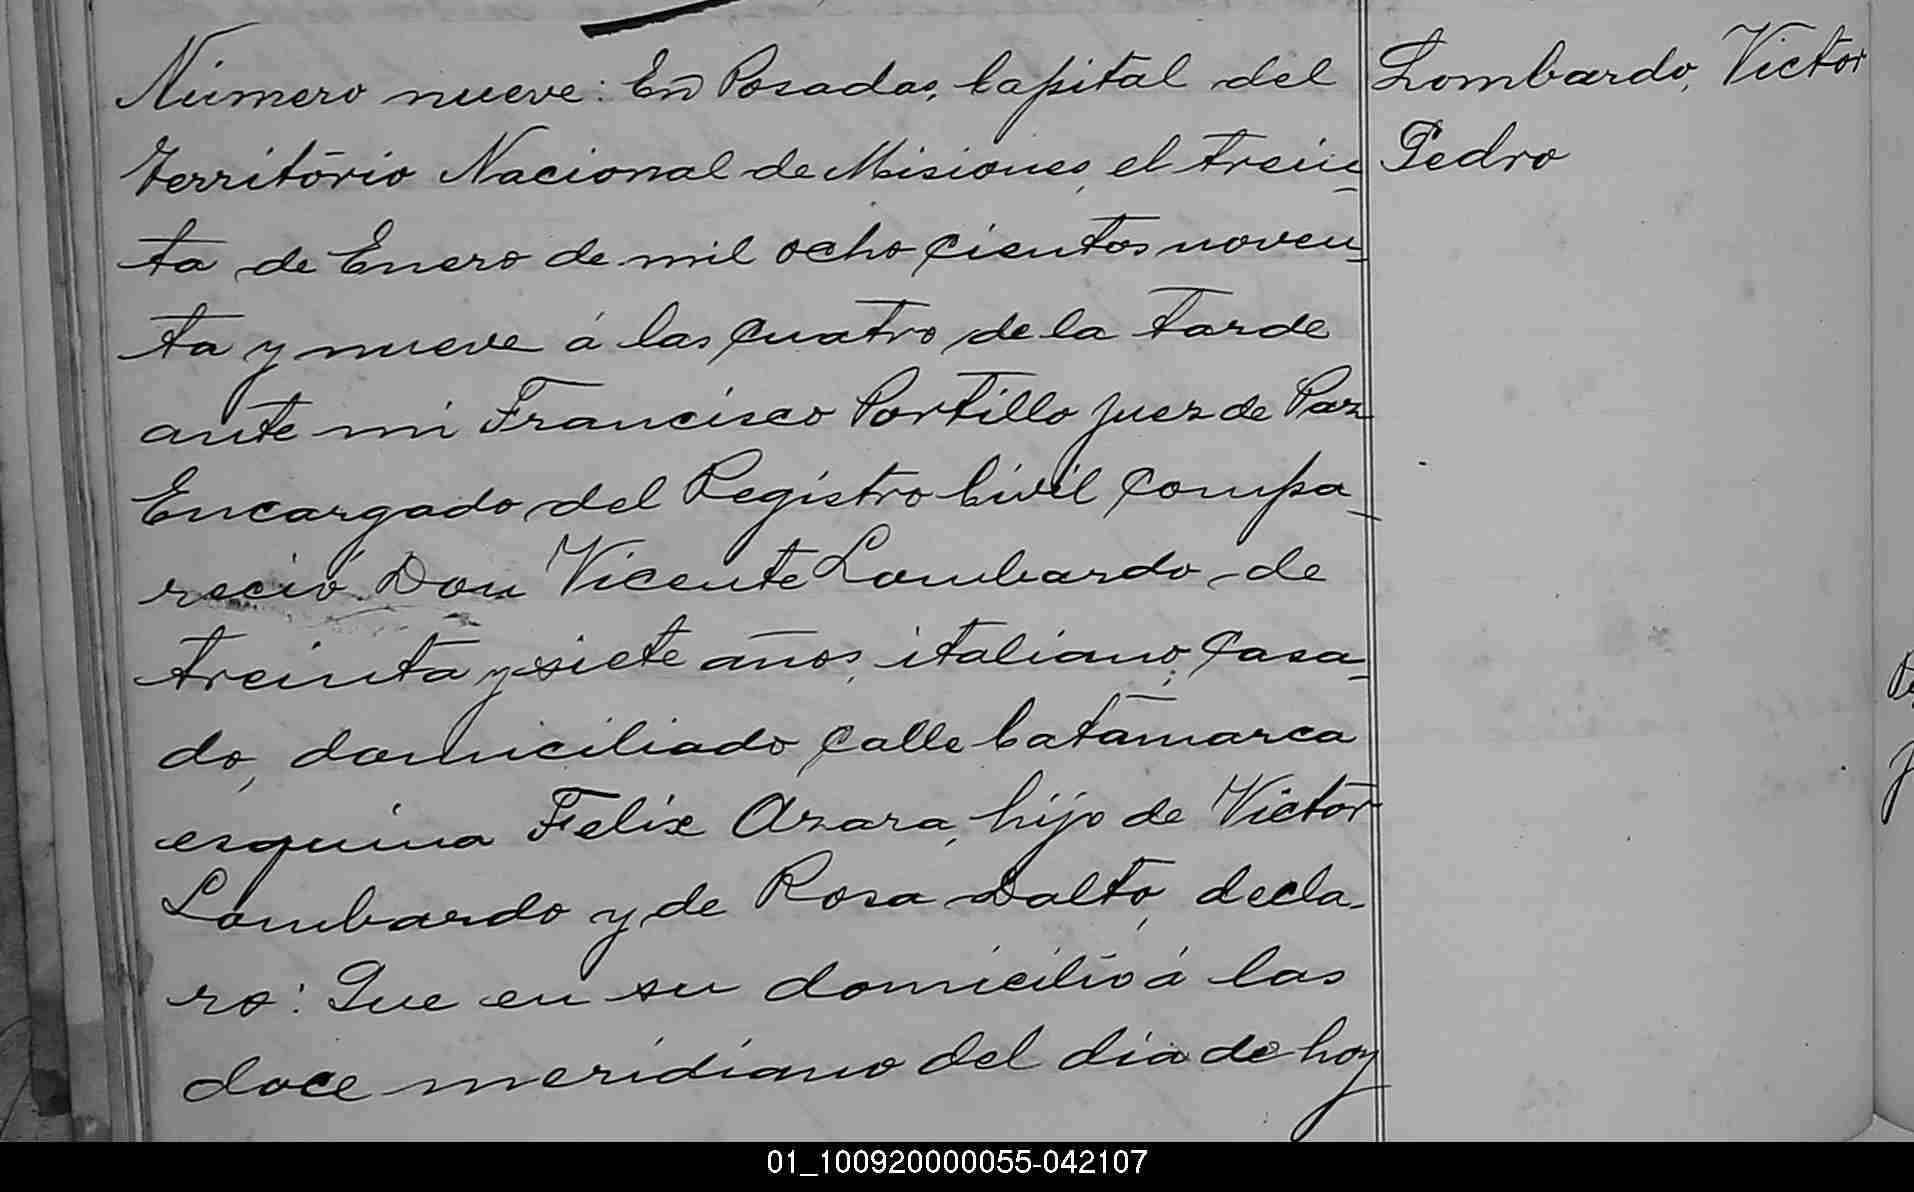 Número nueve: En Posadas, Capital del
Territorio Nacional de Misiones, el trein-
ta de Enero de mil ocho cientos noven-
ta y nueve á las cuatro de la tarde
ante mi Francisco Portillo Juez de Paz
Encargado del Registro Civil compa-
reció Don Vicente Lombardo de
treinta y siete años, italiano, casa-
do, domiciliado calle Catamarca
esquina Felix Azara, hijo de Victor
Lombardo y de Rosa Dalto, decla-
ro: Que en su domicilio á las
doce meridiano del dia de hoy
Lombardo, Victor
Pedro
01_100920000055-042107